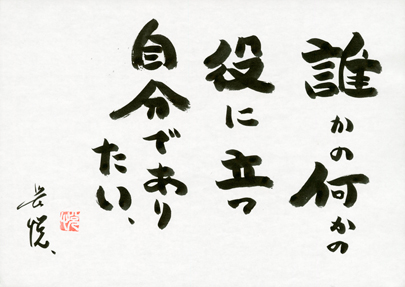 誰かの何かの
役に立つ
自分であり
たい、